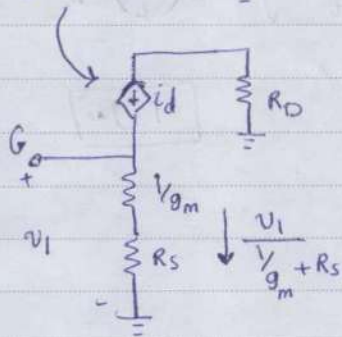 i_d
R_D
G
+
1/g_m
v_1
R_S
v_1
1/g_m + R_S
-